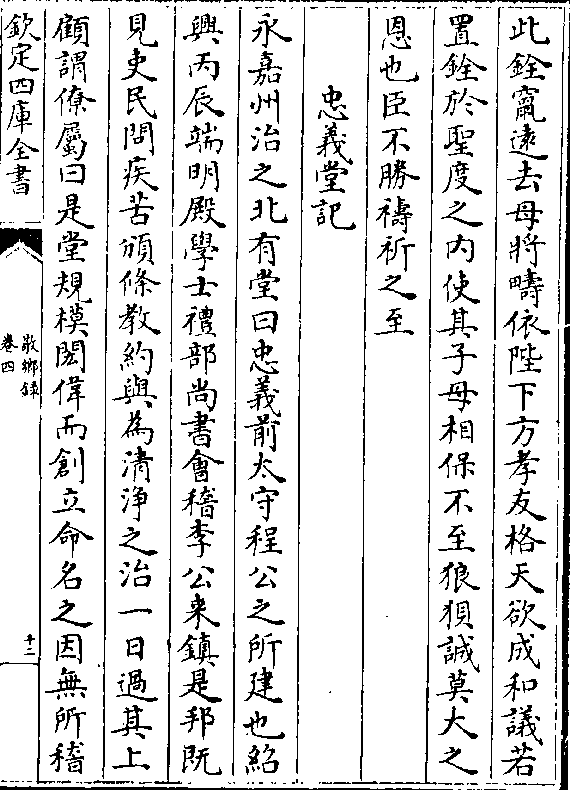 此銓竄逺去母將疇依陛下方孝友格天欲成和議若
置銓於聖度之内使其子母相保不至狼狽誠莫大之
恩也臣不勝禱祈之至
忠義堂記
永嘉州治之北有堂曰忠義前太守程公之所建也紹
興丙辰端明殿學士禮部尚書會稽李公来鎮是邦既
見吏民問疾苦頒條教約與為清浄之治一日過其上
顧謂僚屬曰是堂規模閎偉而創立命名之因無所稽
欽定四庫全書
敬鄉録
卷四
十二